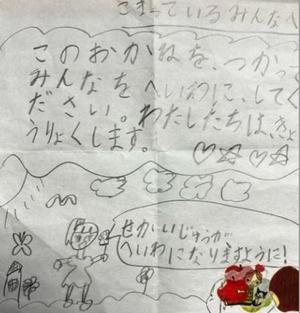 こまっているみんなへ
このおかねを、つかって
みんなをへいわに、してく
ださい。わたしたちは、きょ
うりょくします。
せかいじゅうが
へいわになりますように!